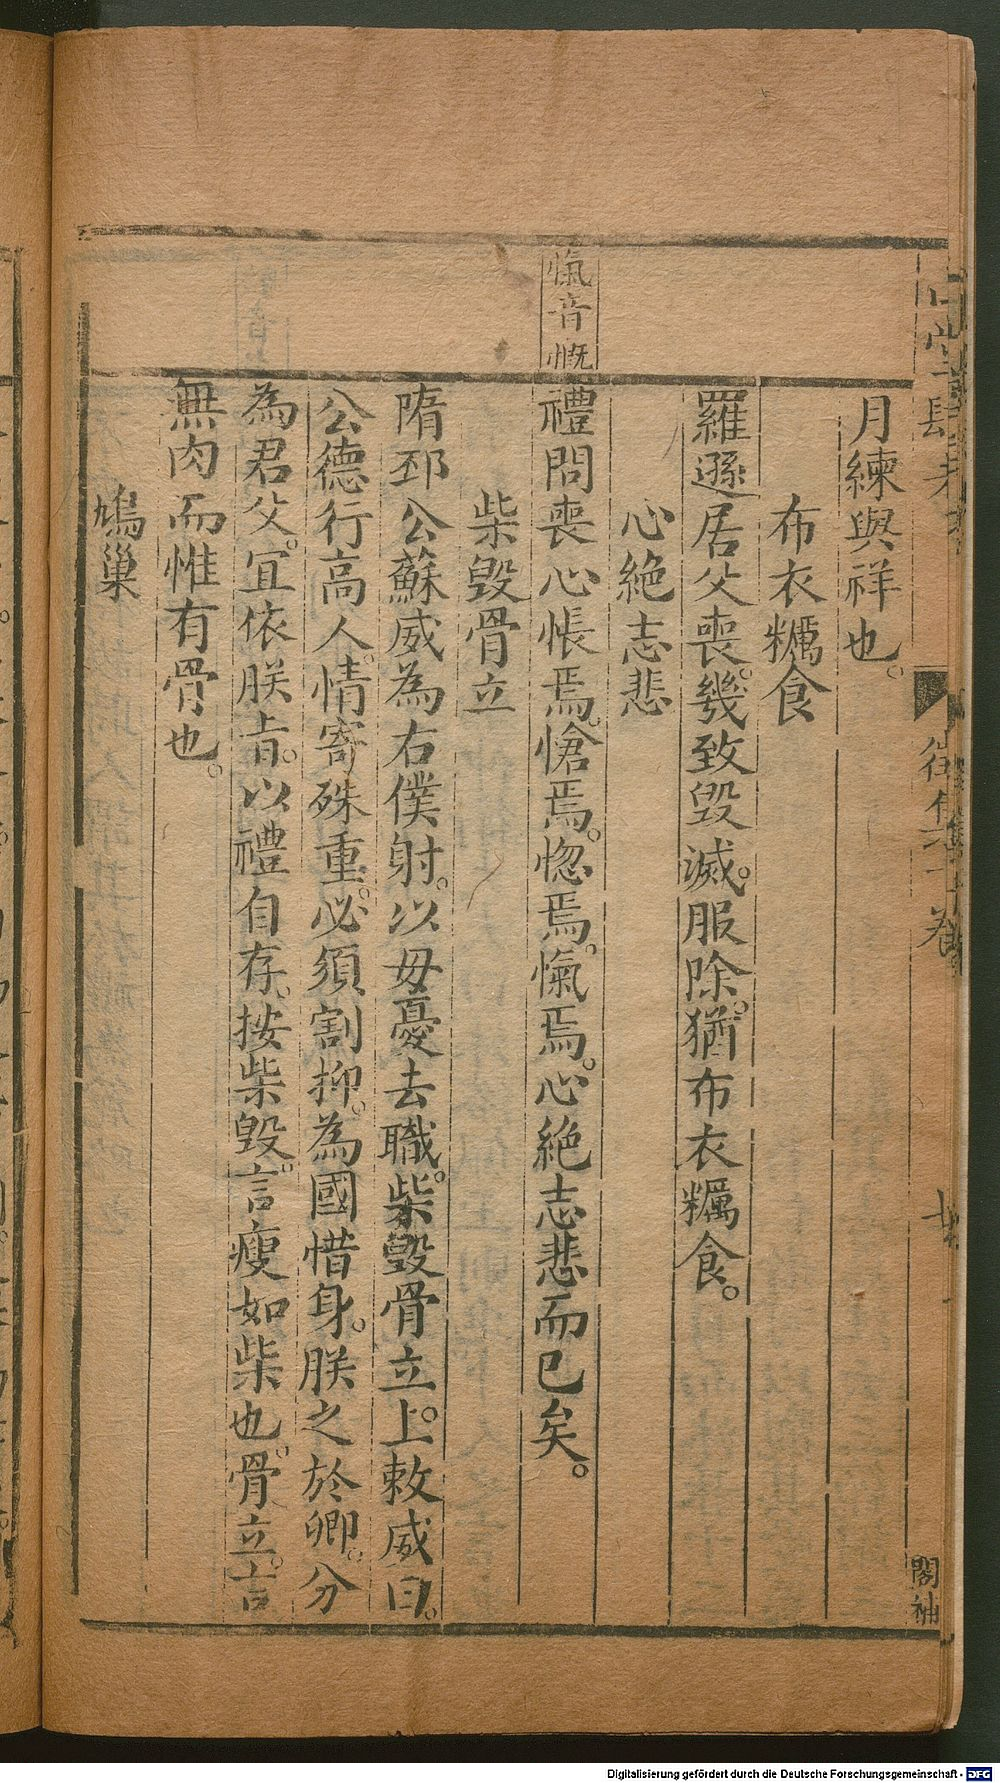 月練與祥也。
布衣糲食
羅遜居父喪。幾致毀滅。服除。猶布衣糲食。
心絶志悲
愾音慨
禮問喪心悵焉。愴焉。惚焉。愾焉。心絶志悲而已矣。
柴毀骨立
隋邳公蘇威為右僕射。以毋憂去職。柴毀骨立。上敕威曰。
公德行高人。情寄殊重。必須割抑。為國惜身。朕之於卿。分
為君父。宜依朕旨。以禮自存。按柴毀。言瘦如柴也。骨立。言
無肉而惟有骨也。
鳩巢
閣袖
Digitalisierung gefördert durch die Deutsche Forschungsgemeinschaft - DFG